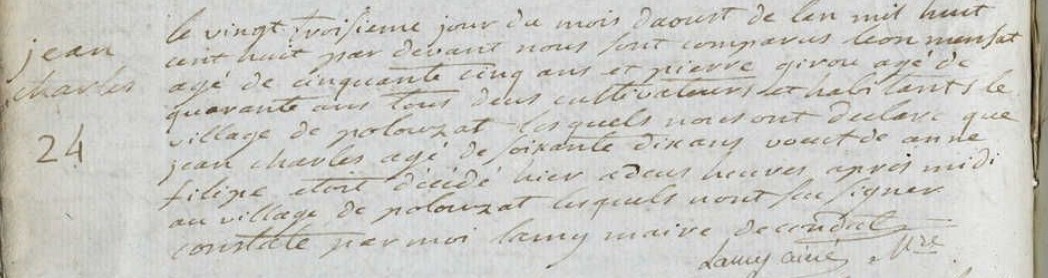 jean
charles
24
le vingt troisieme jour du mois daoust de lan mil huit
cent huit par devant nous sont comparus leon mensat
agé de cinquante cinq ans et pierre girou agé de
quarante ans tous deus cultivateurs et habitants le
village de polouzat lesquels nous ont declaré que
jean charles agé de soixante dix ans veuf de anne
filipe etoit décédé hier a deus heures apres midi
au village de polouzat lesquels nont su signer
constaté par moi lamy maire de condat
Lamy ainé Mre